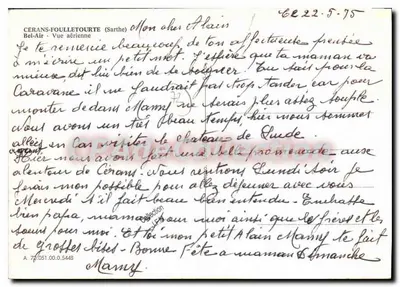 CÉRANS-FOULLETOURTE (Sarthe)
Bel-Air - Vue aérienne
Le 22-5-75
Mon cher Alain
Je te remercie beaucoup de ton affectueuse pensée
à m'écrire un petit mot. J'espère que ta maman va
mieux, dit lui bien de se soigner. Tu sais pour la
caravane il ne faudrait pas trop tarder car pour
monter dedans Mamy ne serais plus assez souple.
Nous avons un très beau temps, hier nous sommes
allés en car visiter le chateau de
Hier nous avons fait une belle promenade aux
alentour de Cérans. Nous rentrons Lundi soir Je
ferais mon possible pour aller déjeuner avec vous
Mercredi s'il fait beau bien entendu. Embrasse
bien papa, maman pour moi ainsi que les frères et les
sœurs pour moi. Et toi mon petit Alain Mamy te fait
de grosses bises - Bonne Fête à maman Dimanche
A 72/051.00.0.5448
Mamy.